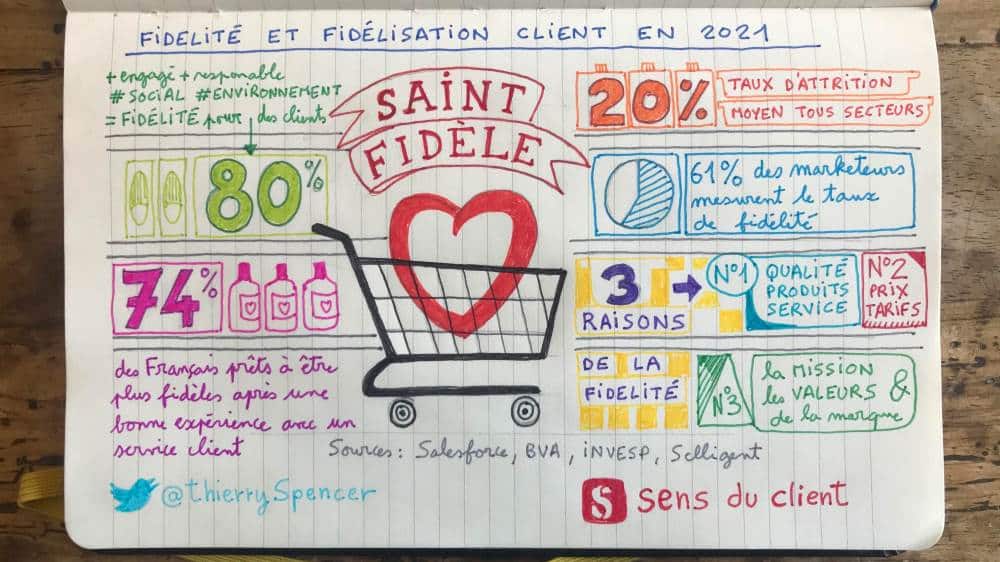 FIDELITÉ ET FIDÉLISATION CLIENT EN 2021
+ engagé + responsable
# SOCIAL #ENVIRONNEMENT
= FIDÉLITÉ pour des clients
80%
74%
des Français prêts à être
plus fidèles après une
bonne expérience avec un
service client
SAINT
FIDÈLE
20%
TAUX D'ATTRITION
MOYEN TOUS SECTEURS
61% des marketeurs
mesurent le taux
de fidélité
3
RAISONS
DE LA
FIDELITÉ
N°1
QUALITÉ
PRODUITS
SERVICE
N°2
PRIX
TARIFS
N°3
la MISSION
les VALEURS &
de la marque
Sources: Salesforce, BVA, iNVESP, Selligent
@thierrySpencer
S sens du client